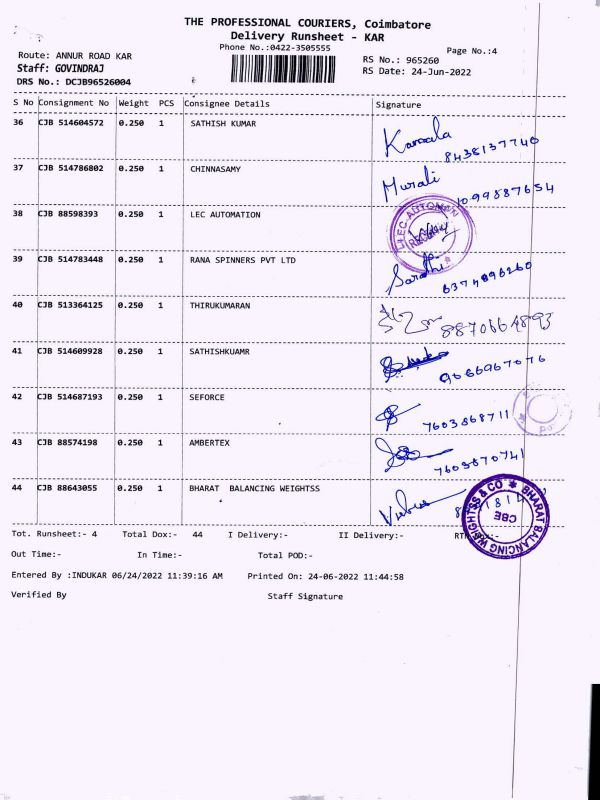 THE PROFESSIONAL COURIERS, Coimbatore
Delivery Runsheet - KAR
Phone No.:0422-3505555
Page No.:4
Route: ANNUR ROAD KAR
RS No.: 965260
Staff: GOVINDRAJ
RS Date: 24-Jun-2022
DRS No.: DCJB96526004
S No Consignment No Weight PCS Consignee Details Signature
36 CJB 514604572 0.250 1 SATHISH KUMAR Kamala
8438137740
37 CJB 514786802 0.250 1 CHINNASAMY Murali
1099887654
38 CJB 88598393 0.250 1 LEC AUTOMATION
39 CJB 514783448 0.250 1 RANA SPINNERS PVT LTD
6374896260
40 CJB 513364125 0.250 1 THIRUKUMARAN
8870664893
41 CJB 514609928 0.250 1 SATHISHKUAMR
9086967076
42 CJB 514687193 0.250 1 SEFORCE
7603868711
43 CJB 88574198 0.250 1 AMBERTEX
7603870741
44 CJB 88643055 0.250 1 BHARAT BALANCING WEIGHTSS
BHARAT BALANCING WEIGHTSS & CO
CBE
Tot. Runsheet:- 4 Total Dox:- 44 I Delivery:- II Delivery:-
Out Time:- In Time:- Total POD:-
Entered By :INDUKAR 06/24/2022 11:39:16 AM Printed On: 24-06-2022 11:44:58
Verified By Staff Signature